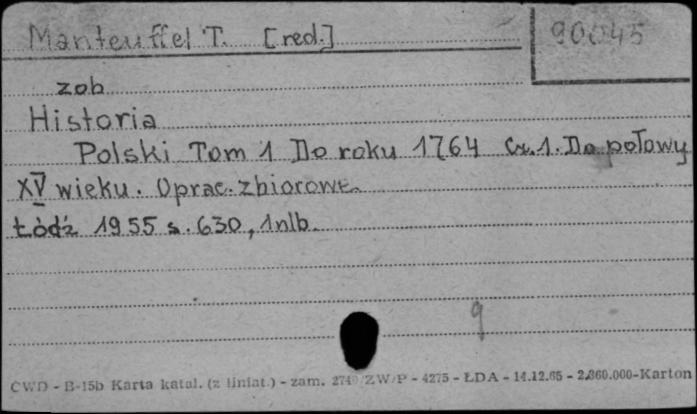 Manteuffel T. [red.]
90045
zob
Historia
Polski Tom 1 Do roku 1764 Cz. 1. Do połowy
XV wieku. Oprac. zbiorowe.
Łódź 1955 s. 630, 1nlb.
g
CWD - B-15b Karta katal. (z liniat.) - zam. 2749/ZW/P - 4275 - ŁDA - 14.12.65 - 2.360.000-Karton